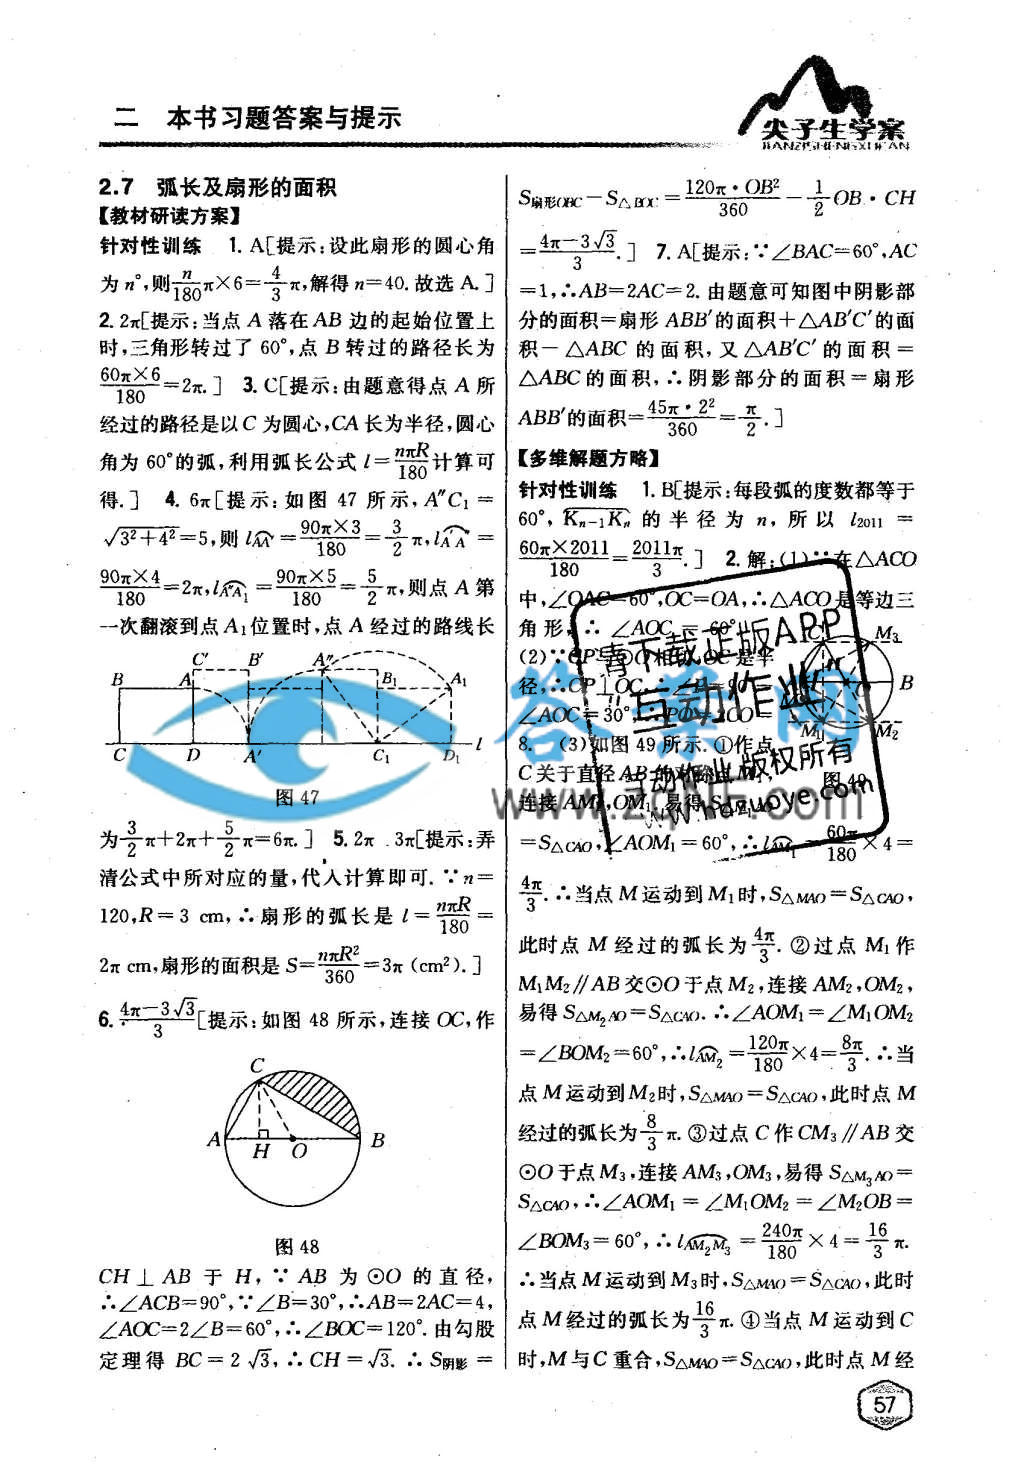 二 本书习题答案与提示
尖子生学案
JIANZISHENGXUEAN
2.7 弧长及扇形的面积
【教材研读方案】
针对性训练 1. A[提示:设此扇形的圆心角
为 n°,则n/180π×6=4/3π,解得 n=40. 故选 A.]
2. 2π[提示:当点 A 落在 AB 边的起始位置上
时,三角形转过了 60°,点 B 转过的路径长为
60π×6/180=2π.] 3. C[提示:由题意得点 A 所
经过的路径是以 C 为圆心,CA 长为半径,圆心
角为 60°的弧,利用弧长公式 l=nπR/180计算可
得.] 4. 6π[提示:如图 47 所示,A″C₁=
√3²+4²=5,则 l=90π×3/180=3/2π,l=
90π×4/180=2π,l=90π×5/180=5/2π,则点 A 第
一次翻滚到点 A₁位置时,点 A 经过的路线长
C′ B′ A″
B A B₁ A₁
C D A′ C₁ D₁ l
图 47
为3/2π+2π+5/2π=6π.] 5. 2π 3π[提示:弄
清公式中所对应的量,代入计算即可. ∵n=
120,R=3 cm,∴扇形的弧长是 l=nπR/180=
2π cm,扇形的面积是 S=nπR²/360=3π (cm²).]
6. 4π-3√3/3[提示:如图 48 所示,连接 OC,作
C
A H O B
图 48
CH⊥AB 于 H,∵AB 为⊙O 的直径,
∴∠ACB=90°,∵∠B=30°,∴AB=2AC=4,
∠AOC=2∠B=60°,∴∠BOC=120°. 由勾股
定理得 BC=2√3,∴CH=√3. ∴S阴影=
S扇形OBC-S△BOC=120π·OB²/360-1/2OB·CH
=4π-3√3/3.] 7. A[提示:∵∠BAC=60°,AC
=1,∴AB=2AC=2. 由题意可知图中阴影部
分的面积=扇形 ABB′的面积+△AB′C′的面
积-△ABC 的面积,又△AB′C′的面积=
△ABC 的面积,∴阴影部分的面积=扇形
ABB′的面积=45π·2²/360=π/2.]
【多维解题方略】
针对性训练 1. B[提示:每段弧的度数都等于
60°,Kₙ₋₁Kₙ 的半径为 n,所以 l₂₀₁₁=
60π×2011/180=2011π/3.] 2. 解:(1)∵在△ACO
中,∠OAC=60°,OC=OA,∴△ACO 是等边三
角形,∴∠AOC=60°.
(2)∵CP与⊙O相切,OC是半
径,∴CP⊥OC,
∠AOC=30°,∴PO=2CO=
8. (3)如图 49 所示. ①作点
C 关于直径 AB 的对称点
连接 AM₁,OM₁.易得
=S△CAO,∠AOM₁=60°,∴l=60π/180×4=
C M₃
B
M₁ M₂
图 49
4π/3. ∴当点 M 运动到 M₁时,S△MAO=S△CAO,
此时点 M 经过的弧长为4π/3. ②过点 M₁作
M₁M₂∥AB 交⊙O 于点 M₂,连接 AM₂,OM₂,
易得 S△M₂AO=S△CAO. ∴∠AOM₁=∠M₁OM₂
=∠BOM₂=60°,∴lAM₂=120π/180×4=8π/3. ∴当
点 M 运动到 M₂时,S△MAO=S△CAO,此时点 M
经过的弧长为8/3π. ③过点 C 作 CM₃∥AB 交
⊙O 于点 M₃,连接 AM₃,OM₃,易得 S△M₃AO=
S△CAO,∴∠AOM₁=∠M₁OM₂=∠M₂OB=
∠BOM₃=60°,∴lAM₂M₃=240π/180×4=16/3π.
∴当点 M 运动到 M₃时,S△MAO=S△CAO,此时
点 M 经过的弧长为16/3π. ④当点 M 运动到 C
时,M 与 C 重合,S△MAO=S△CAO,此时点 M 经
57
请下载正版APP
"互动作业"
互动作业版权所有
www.hdzuoye.com
答案网
www.zqNF.com